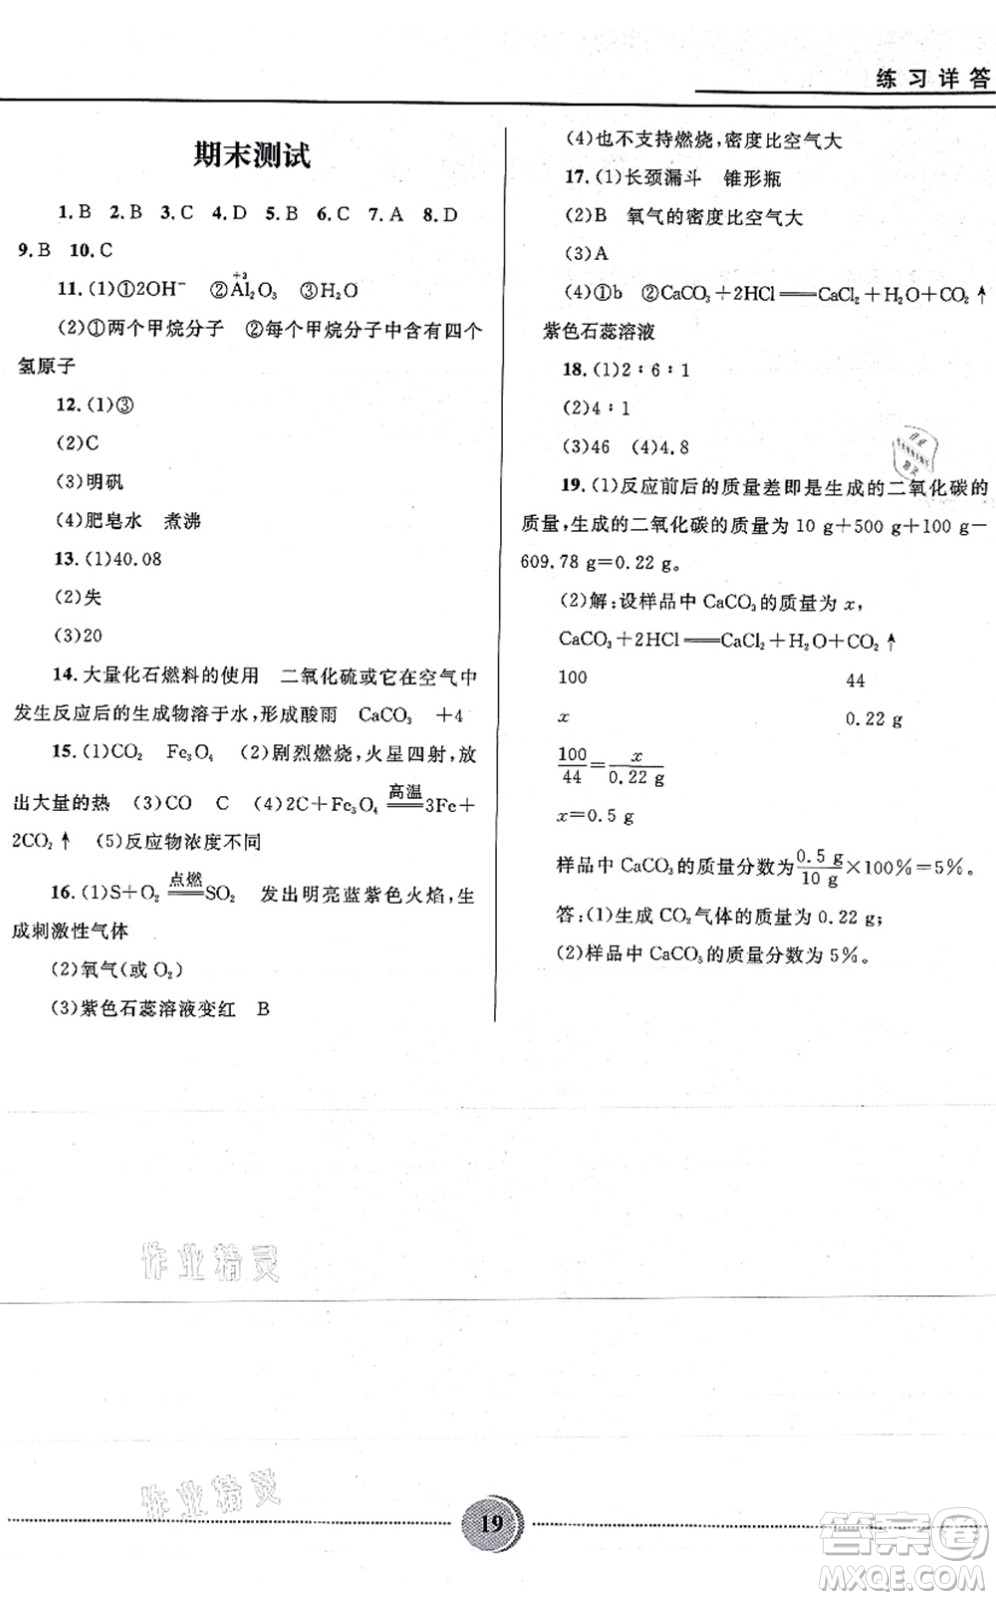 练习详答
期末测试
1.B 2.B 3.C 4.D 5.B 6.C 7.A 8.D
9.B 10.C
11.(1)①2OH⁻ ②A̽l₂O₃ +3 ③H₂O
(2)①两个甲烷分子 ②每个甲烷分子中含有四个
氢原子
12.(1)③
(2)C
(3)明矾
(4)肥皂水 煮沸
13.(1)40.08
(2)失
(3)20
14.大量化石燃料的使用 二氧化硫或它在空气中
发生反应后的生成物溶于水,形成酸雨 CaCO₃ +4
15.(1)CO₂ Fe₃O₄ (2)剧烈燃烧,火星四射,放
出大量的热 (3)CO C (4)2C+Fe₃O₄ 高温══ 3Fe+
2CO₂↑ (5)反应物浓度不同
16.(1)S+O₂ 点燃══ SO₂ 发出明亮蓝紫色火焰,生
成刺激性气体
(2)氧气(或 O₂)
(3)紫色石蕊溶液变红 B
(4)也不支持燃烧,密度比空气大
17.(1)长颈漏斗 锥形瓶
(2)B 氧气的密度比空气大
(3)A
(4)①b ②CaCO₃+2HCl══CaCl₂+H₂O+CO₂↑
紫色石蕊溶液
18.(1)2∶6∶1
(2)4∶1
(3)46 (4)4.8
19.(1)反应前后的质量差即是生成的二氧化碳的
质量,生成的二氧化碳的质量为 10 g+500 g+100 g−
609.78 g=0.22 g。
(2)解:设样品中 CaCO₃的质量为 x,
CaCO₃+2HCl══CaCl₂+H₂O+CO₂↑
100 44
x 0.22 g
100/44=x/0.22 g
x=0.5 g
样品中 CaCO₃的质量分数为 0.5 g/10 g×100%=5%。
答:(1)生成 CO₂气体的质量为 0.22 g;
(2)样品中 CaCO₃的质量分数为 5%。
作业精灵
作业精灵
19
答案圈
MXQE.COM